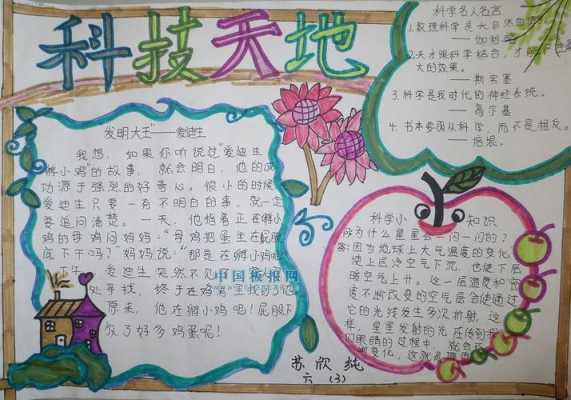 科技天地
发明大王”——爱迪生
我想，如果你听说过“爱迪生
孵小鸡”的故事，就会明白，他的成
功源于强烈的好奇心。很小的时候
爱迪生只要一有不明白的事，就一定
要追问清楚。一天，他指着正在孵小
鸡的母鸡问妈妈：“母鸡把蛋坐在屁股
底下干吗？”妈妈说：“那是在孵小鸡呢
爱迪生突然不见了
处寻找，终于在鸡窝里找到了他
原来，他在孵小鸡呢！屁股下
放了好多鸡蛋呢！
中国板报网
科学名人名言
1.数理科学是大自然
——伽利略
2.天才跟科学结合，才能
大的效果。
——斯宾塞
3.科学是我时代的神经系统。
——高尔基
4.书本要跟从科学，而不是相反。
——培根。
科学小知识
为什么星星会一闪一闪的？
答：因为地球上大气温度的变化，
使上层冷空气下沉，也使下层
暖空气上升。这一层温度和密
度不断改变的空气层会使通过
它的光线发生多次折射，这
样，星星发射的光在传到我
们眼睛的过程中，就会
变化，这就
苏欣纯
六（3）